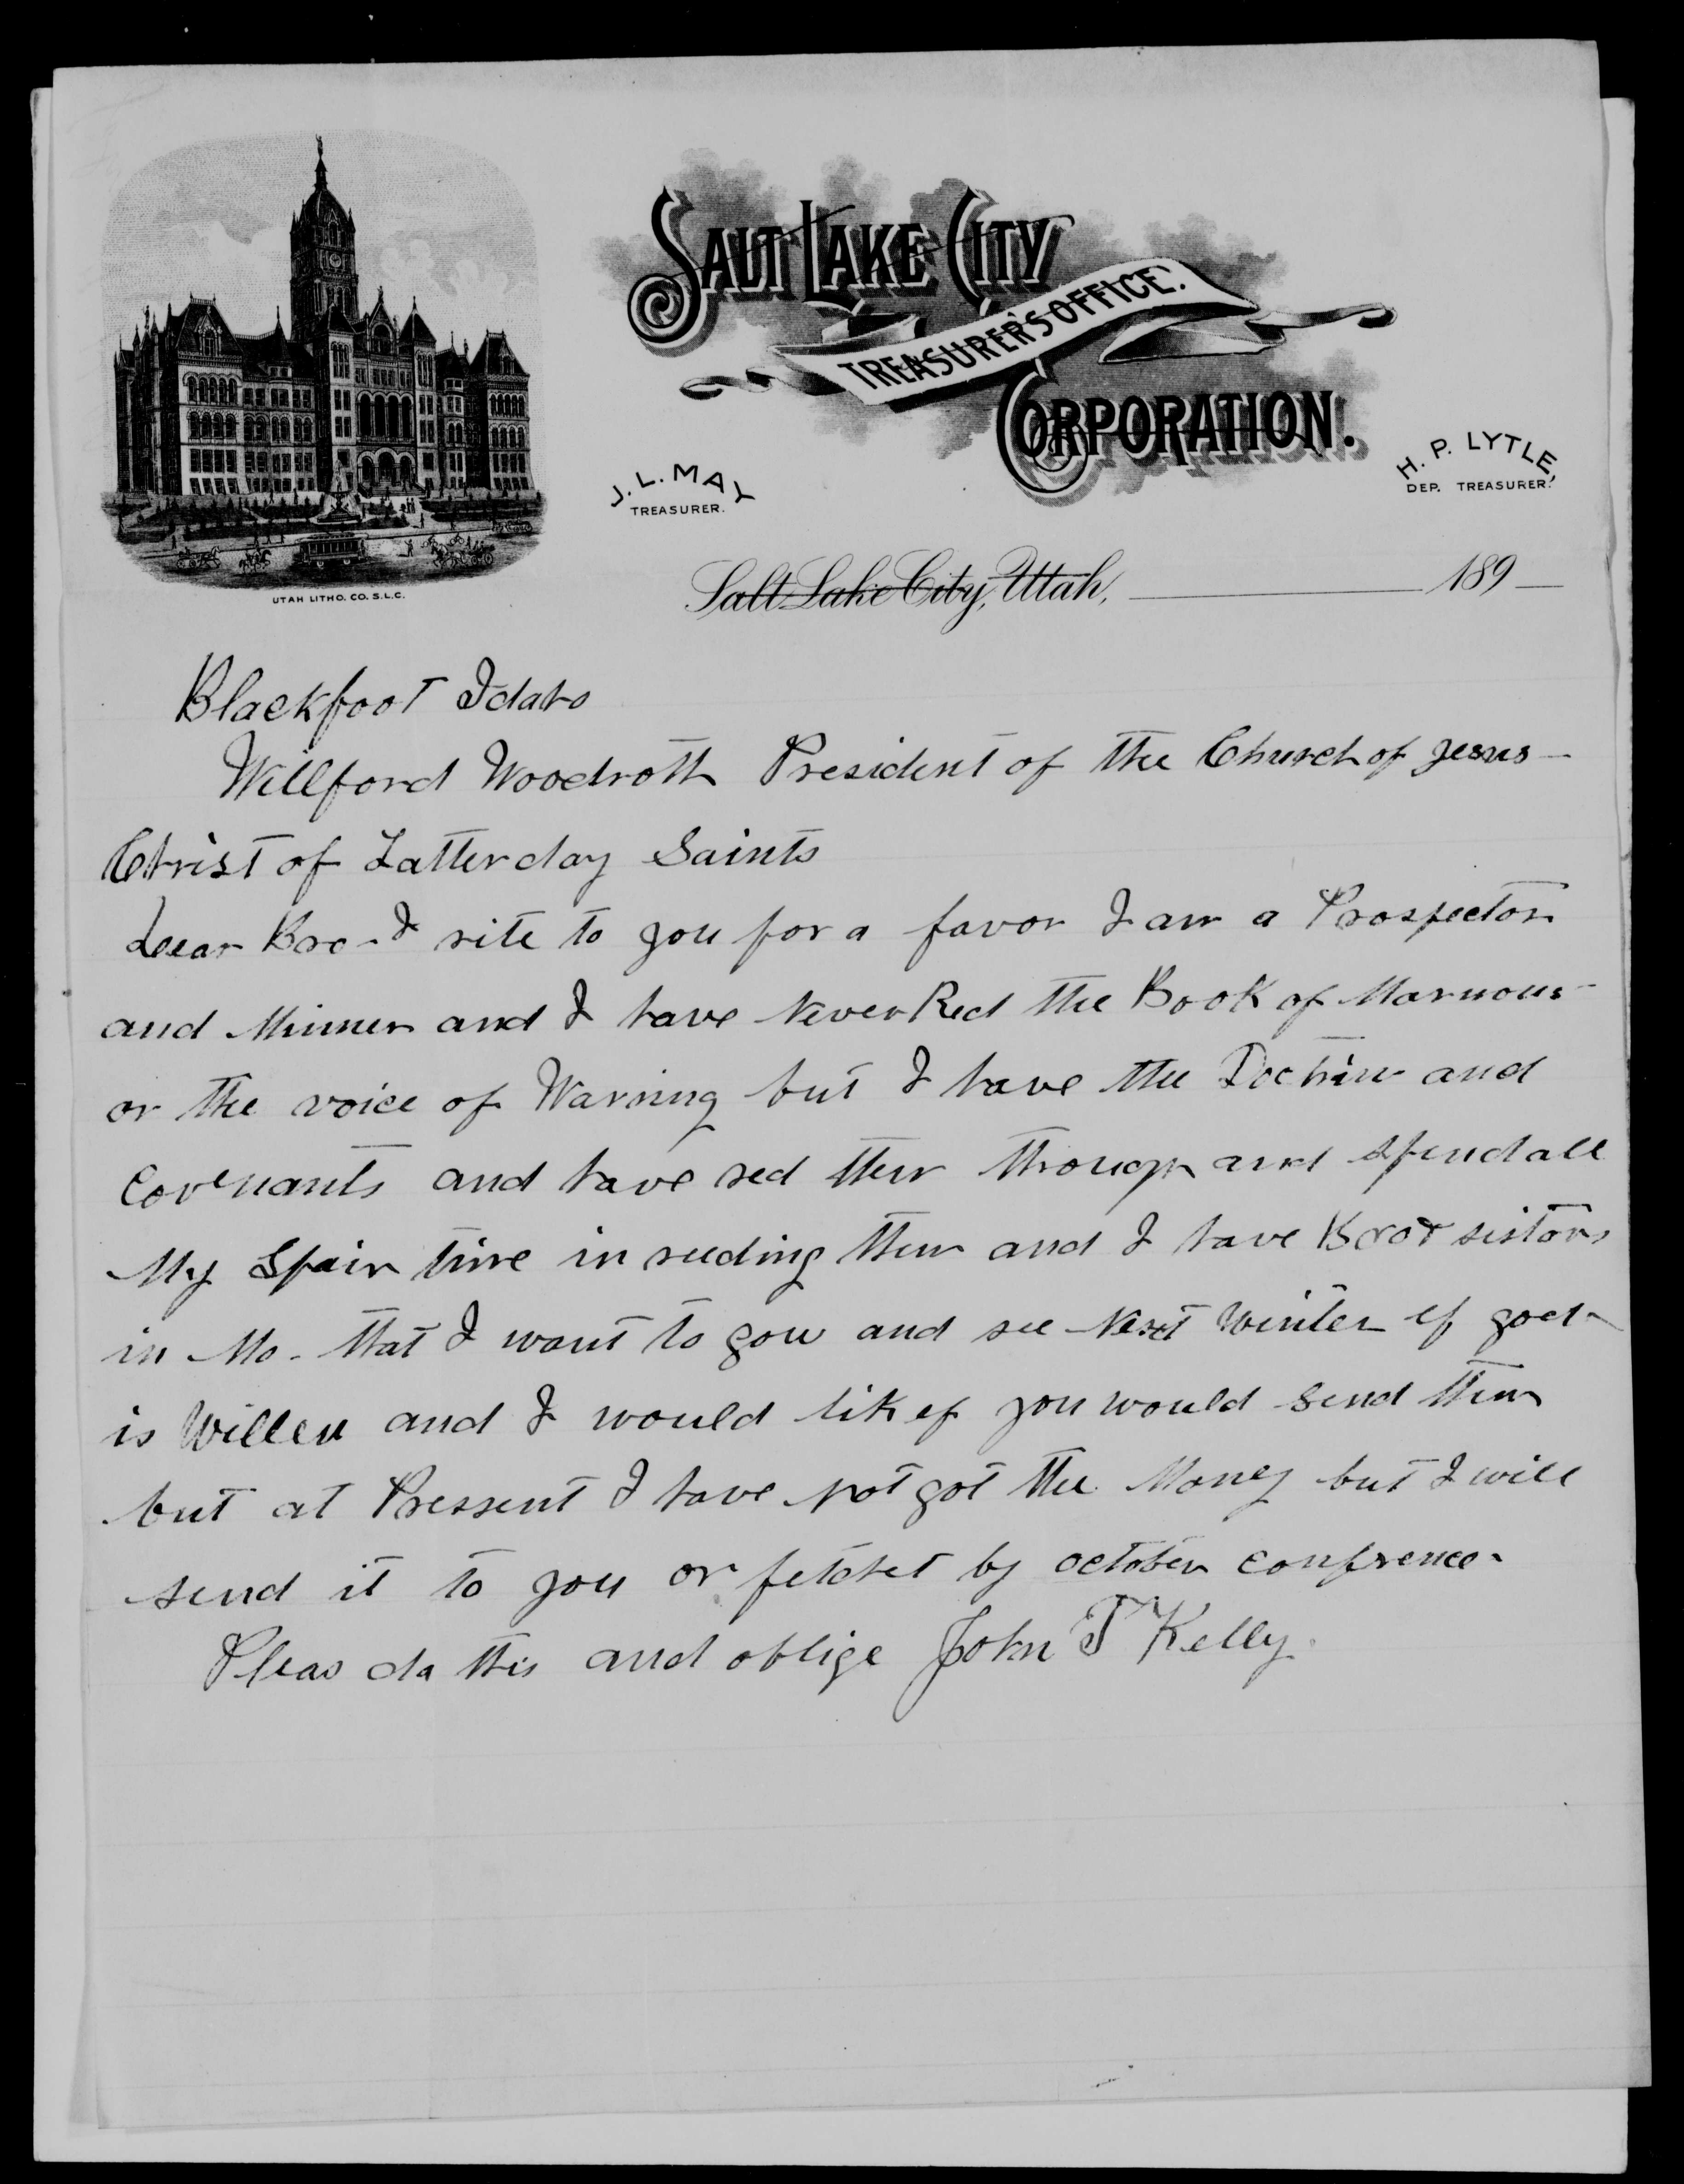 SALT LAKE CITY
TREASURER'S OFFICE.
CORPORATION.
J. L. MAY
TREASURER.
H. P. LYTLE,
DEP. TREASURER.
Salt Lake City, Utah, 189
UTAH LITHO. CO. S.L.C.
Blackfoot Idaho
Willford Woodroth President of the Church of Jesus
Christ of Latterday Saints
Dear Bro - I rite to you for a favor I am a Prospector
and Minner and I have Never Red the Book of
or the voice of Warning but I have the Doctrin and
Covenants and have red them through and spend all
My Spair time in reeding them and I have sistors
in Mo - that I want to gow and see Next Winter ef god
is Willen and I would lik ef you would Send them
but at Pressent I have not got the Money but I will
send it to you or fetchet by october confrence
Pleas do this and oblige John T Kelly